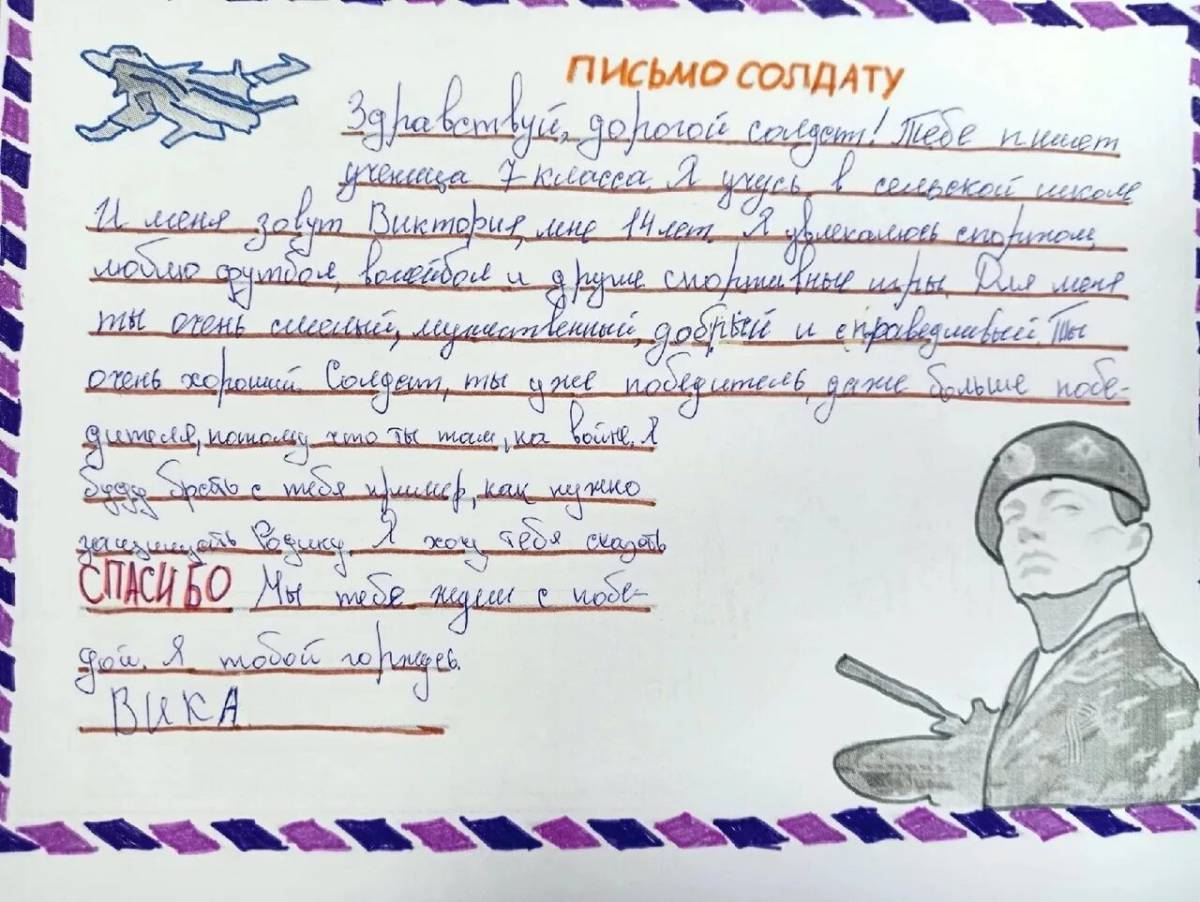 ПИСЬМО СОЛДАТУ
Здравствуй, дорогой солдат! Тебе пишет
ученица 7 класса. Я учусь в сельской школе
И меня зовут Виктория, мне 14 лет. Я увлекаюсь спортом,
люблю футбол, волейбол и другие спортивные игры. Для меня
ты очень смелый, мужественный, добрый и справедливый. Ты
очень хороший. Солдат, ты уже победитель, даже больше побе-
дителя, потому что ты там, на войне. Я
буду брать с тебя пример, как нужно
защищать Родину. Я хочу тебя сказать
СПАСИБО Мы тебя ждем с побе-
дой. Я тобой горжусь.
ВИКА